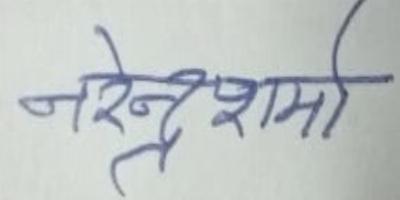 नरेन्द्र शर्मा